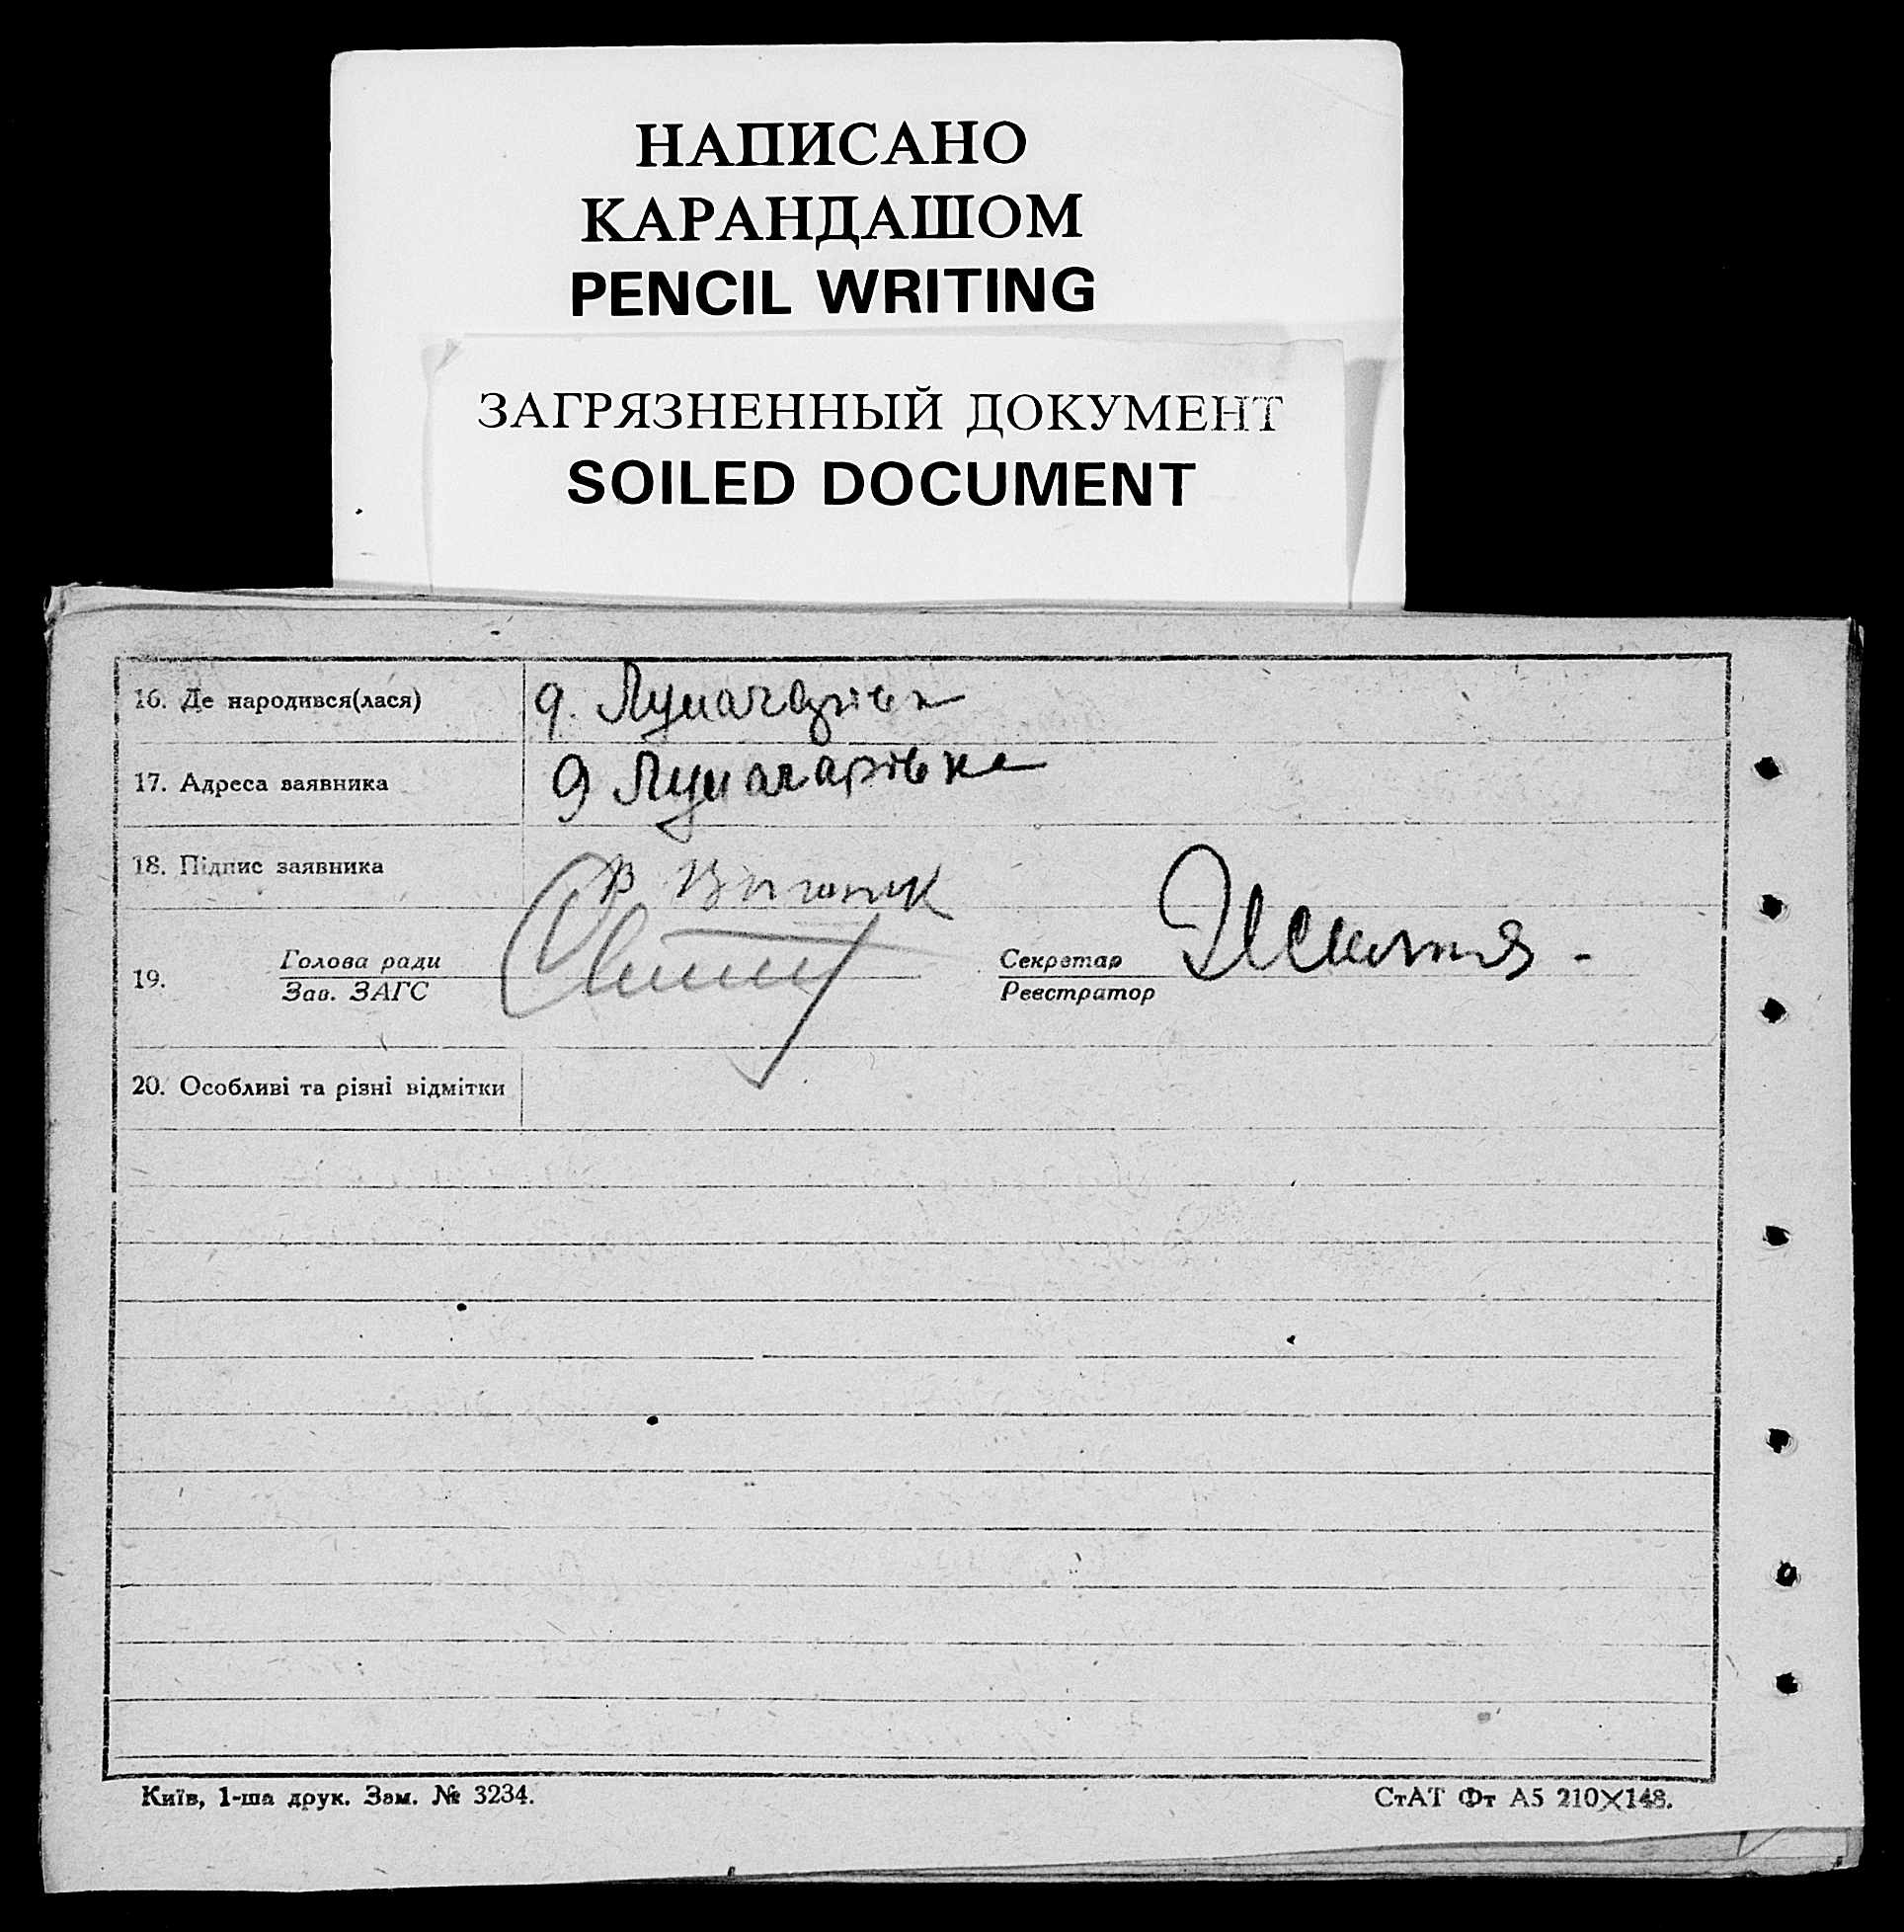 НАПИСАНО
КАРАНДАШОМ
PENCIL WRITING
ЗАГРЯЗНЕННЫЙ ДОКУМЕНТ
SOILED DOCUMENT
16. Де народився(лася)
17. Адреса заявника
18. Підпис заявника
19. Голова ради
Зав. ЗАГС
Секретар
Реєстратор
20. Особливі та різні відмітки
Київ, 1-ша друк. Зам. № 3234.
СтАТ Фт А5 210×148.